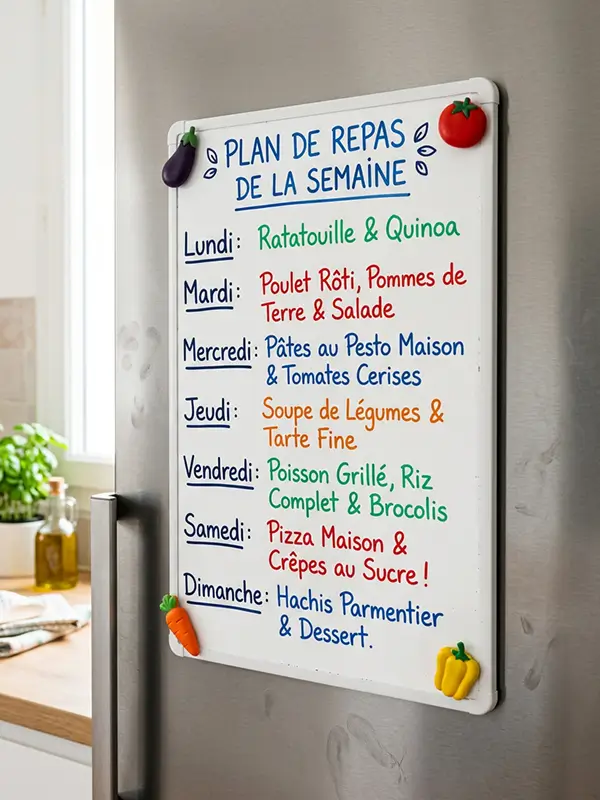 PLAN DE REPAS
DE LA SEMAINE
Lundi: Ratatouille & Quinoa
Mardi: Poulet Rôti, Pommes de
Terre & Salade
Mercredi: Pâtes au Pesto Maison
& Tomates Cerises
Jeudi: Soupe de Légumes &
Tarte Fine
Vendredi: Poisson Grillé, Riz
Complet & Brocolis
Samedi: Pizza Maison &
Crêpes au Sucre !
Dimanche: Hachis Parmentier
& Dessert.